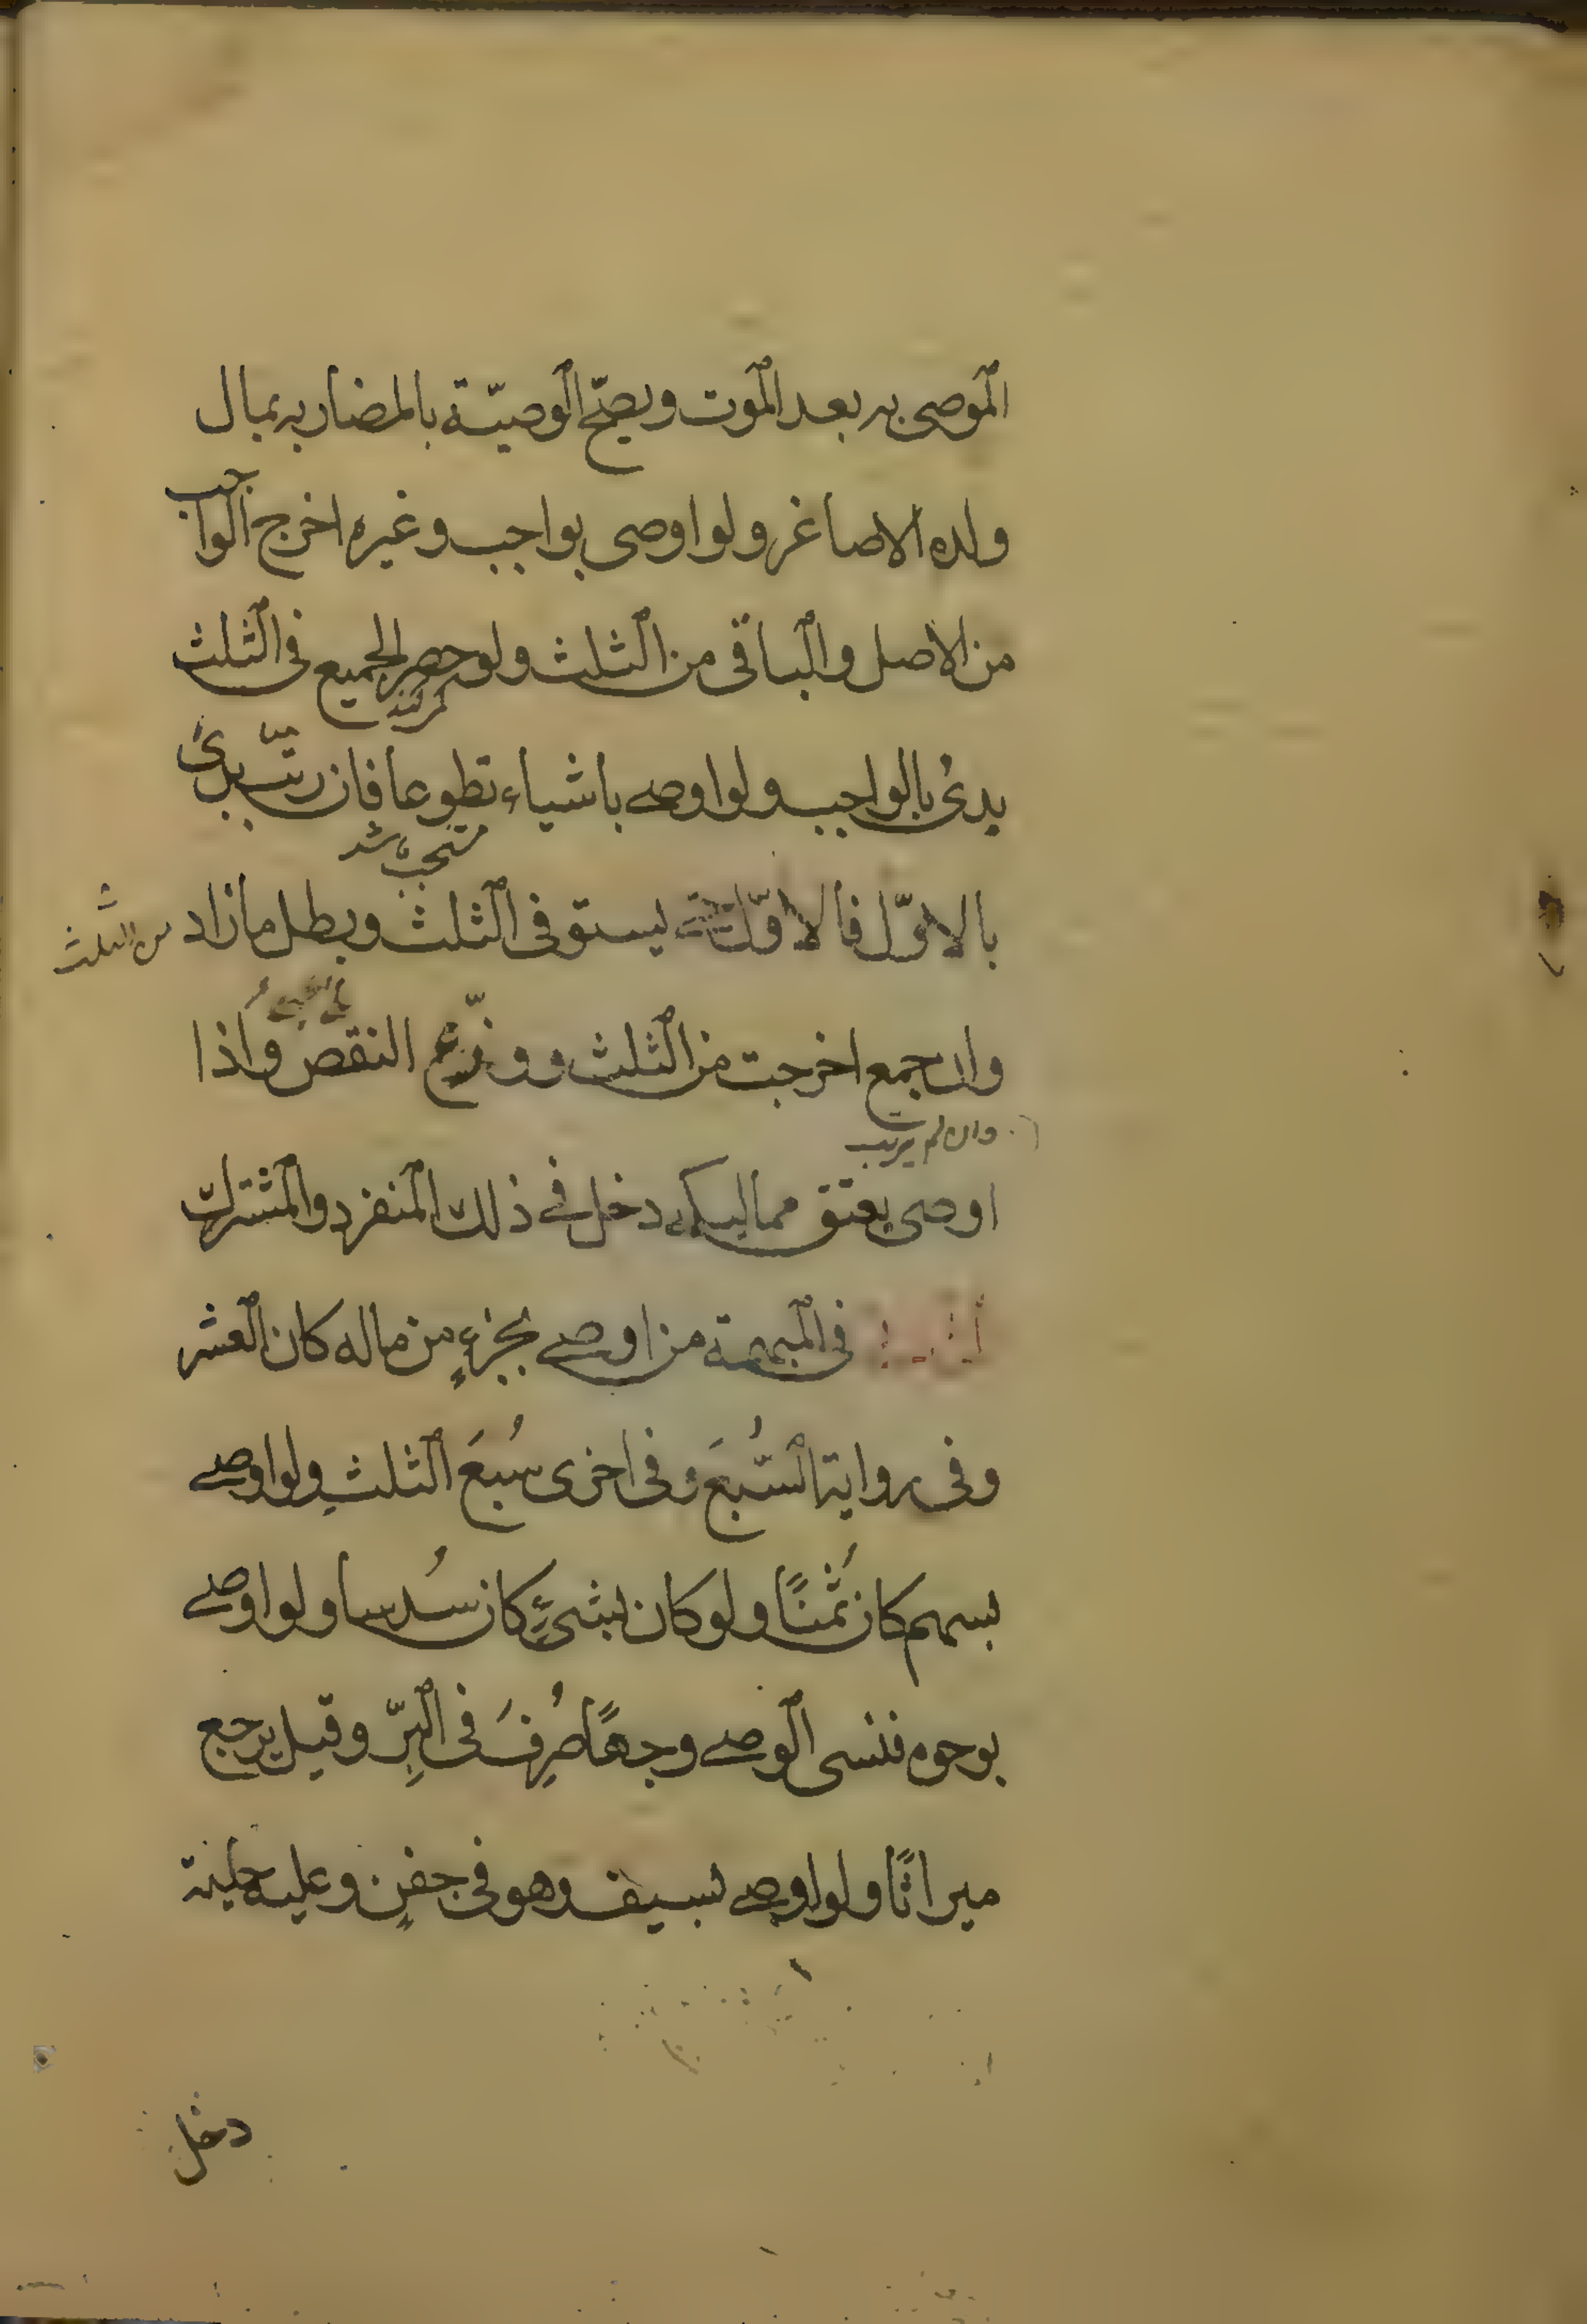 الموصى به بعد الموت ويصحّ الوصيّة بالمضاربة بمال
ولده الاصاغر ولو اوصى بواجب وغيره اخرج الواجب
من الاصل والباقى من الثلث ولو حصر الجميع فى الثلث
بدئ بالواجب ولو اوصى باشياء تطوعا فان رتّب بدئ
بالاوّل فالاوّل يستوفى الثلث وبطل ما زاد
من الثلث
وان جمع اخرجت من الثلث ووزّع النقص واذا
وان لم يرتب
اوصى بعتق مماليكه دخل فى ذلك المنفرد والمشترك
فى المبهمة من اوصى بجزءٍ من ماله كان العشر
وفى رواية السُّبعَ وفى اخرى سُبعَ الثلثِ ولو اوصى
بسهم كان ثُمنًا ولو كان بشيءٍ كان سُدسا ولو اوصى
بوجوه فنسى الوصى وجهًا صُرِفَ فى البِرّ وقيل يرجع
ميراثًا ولو اوصى بسيف وهو فى جفنٍ وعليه حلية
دخل